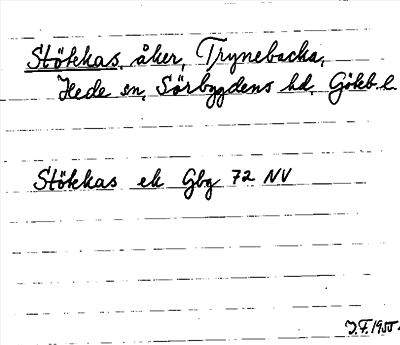 Stökkas, åker, Trynebacka,
Hede sn, Sörbygdens hd, Göteb. l.
Stökkas ek Gbg 72 NV
J.F. 1955.